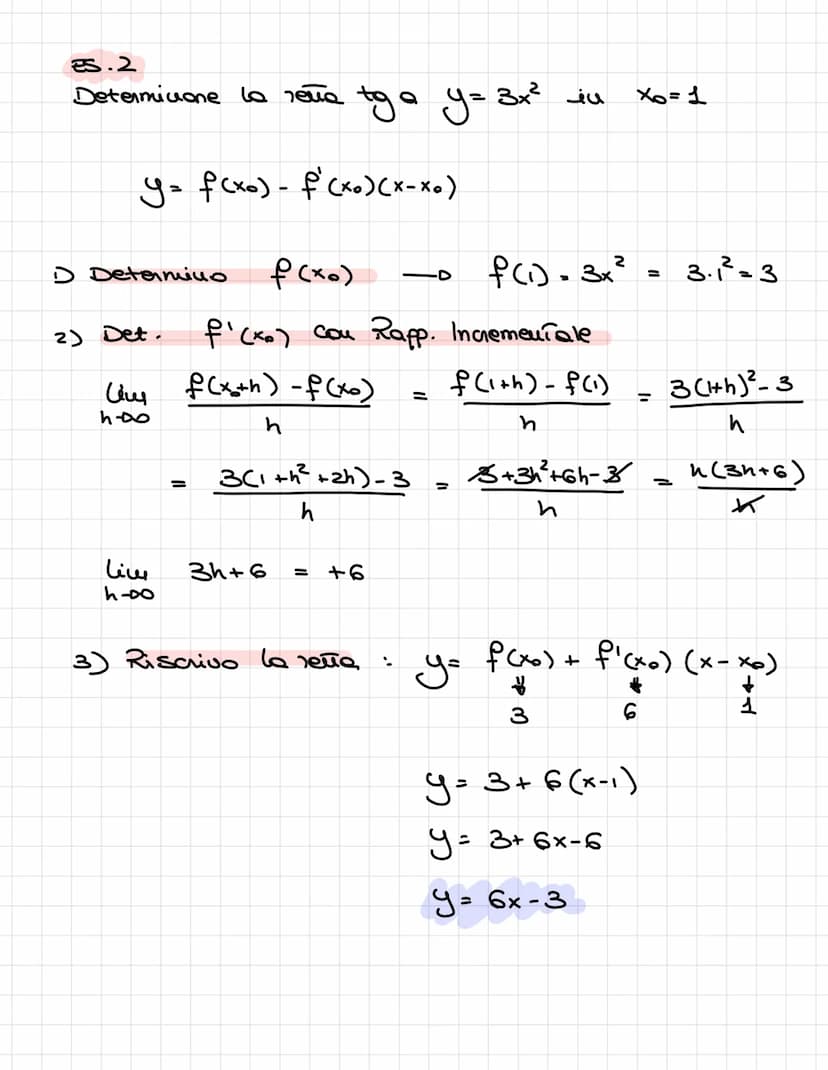 ES.2
Determinare la retta tg a y = 3x² in x₀ = 1
y = f(x₀) - f'(x₀)(x-x₀)
1) Determino f(x₀) → f(1) = 3x² = 3·1² = 3
2) Det. f'(x₀) con Rapp. Incrementale
lim h→0 (f(x₀+h) - f(x₀))/h = (f(1+h) - f(1))/h = (3(1+h)² - 3)/h
= (3(1+h²+2h) - 3)/h = (3+3h²+6h-3)/h = h(3h+6)/h
lim h→0 3h+6 = +6
3) Riscrivo la retta : y = f(x₀) + f'(x₀) (x-x₀)
3 6 1
y = 3 + 6(x-1)
y = 3+ 6x-6
y = 6x-3